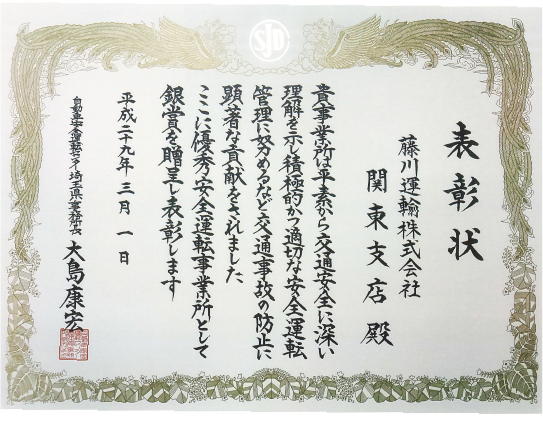 SJD
表彰状
藤川運輸株式会社
関東支店殿
貴事業所は平素から交通安全に深い
理解を示し積極的かつ適切な安全運転
管理に努めるなど交通事故の防止に
顕著な貢献をされました
ここに優秀安全運転事業所として
銀賞を贈呈し表彰します
平成二十九年三月一日
自動車安全運転センター埼玉県事務所長
大島康宏